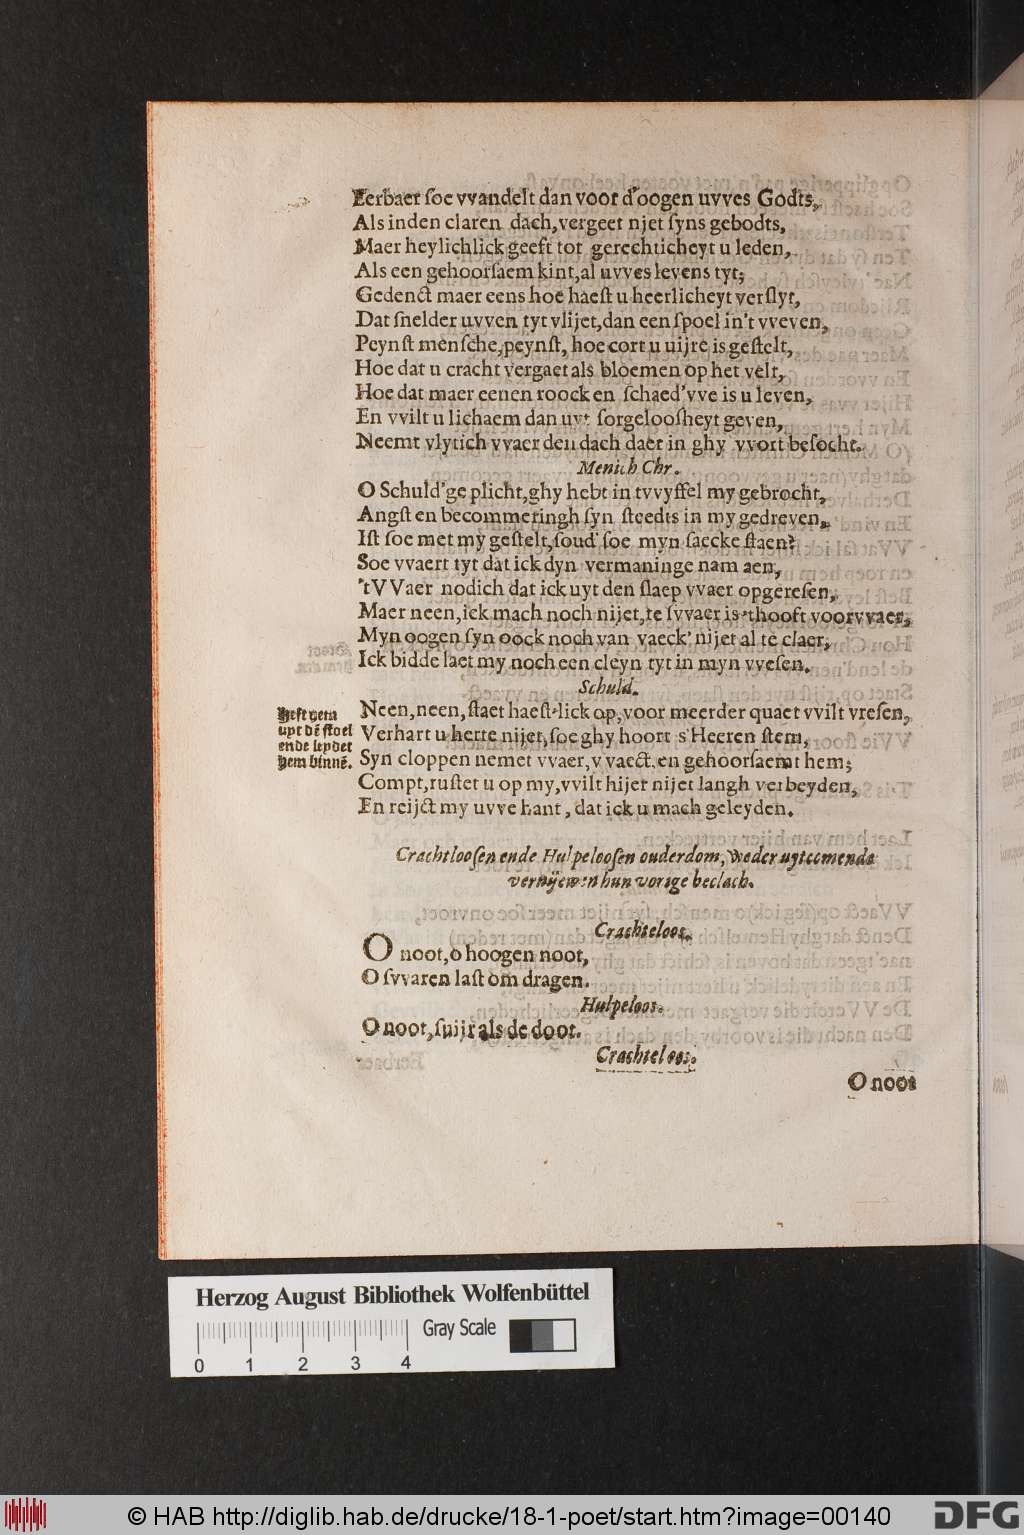 Eerbaer ſoe vvandelt dan voor d'oogen uvves Godts,
Als inden claren dach, vergeet njet ſyns gebodts,
Maer heylichlick geeft tot gerechticheyt u leden,
Als een gehoorſaem kint, al uvves levens tyt;
Gedenct maer eens hoe haeſt u heerlicheyt verſlyt,
Dat ſnelder uvven tyt vlijet, dan een ſpoel in't vveven,
Peynſt menſche, peynſt, hoe cort u uijre is geſtelt,
Hoe dat u cracht vergaet als bloemen op het velt,
Hoe dat maer eenen roock en ſchaed'vve is u leven,
En vvilt u lichaem dan uvt ſorgelooſheyt geven,
Neemt vlytich vvaer den dach daer in ghy vvort beſocht.
Menſch Chr.
O Schuld'ge plicht, ghy hebt in tvvyffel my gebrocht,
Angſt en becommeringh ſyn ſteedts in my gedreven,
Iſt ſoe met my geſtelt, ſoud' ſoe myn ſaecke ſtaen?
Soe vvaert tyt dat ick dyn vermaninge nam aen,
'tVVaer nodich dat ick uyt den ſlaep vvaer opgereſen,
Maer neen, ick mach noch nijet, te ſvvaer is 'thooft voorvvaer,
Myn oogen ſyn oock noch van vaeck' nijet al te claer,
Ick bidde laet my noch een cleyn tyt in myn vveſen.
Schuld.
Heft hem
uyt dẽ ſtoel
ende leydet
hem binnẽ.
Neen, neen, ſtaet haeſt-lick op, voor meerder quaet vvilt vreſen,
Verhart u herte nijet, ſoe ghy hoort s'Heeren ſtem,
Syn cloppen nemet vvaer, vvaect, en gehoorſaemt hem;
Compt, ruſtet u op my, vvilt hijer nijet langh verbeyden,
En reijct my uvve hant, dat ick u mach geleyden.
Crachtlooſen ende Hulpelooſen ouderdom, weder uytcomende
vernijewen hun vorige beclach.
Crachteloos.
O noot, o hoogen noot,
O ſvvaren laſt om dragen.
Hulpeloos.
O noot, ſuijr als de doot.
Crachteloos.
O noot
Herzog August Bibliothek Wolfenbüttel
Gray Scale
0 1 2 3 4
© HAB http://diglib.hab.de/drucke/18-1-poet/start.htm?image=00140
DFG